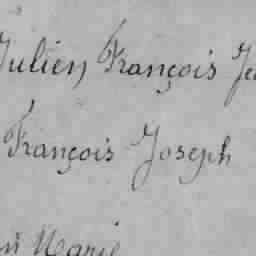 Julien François
François Joseph
Marie